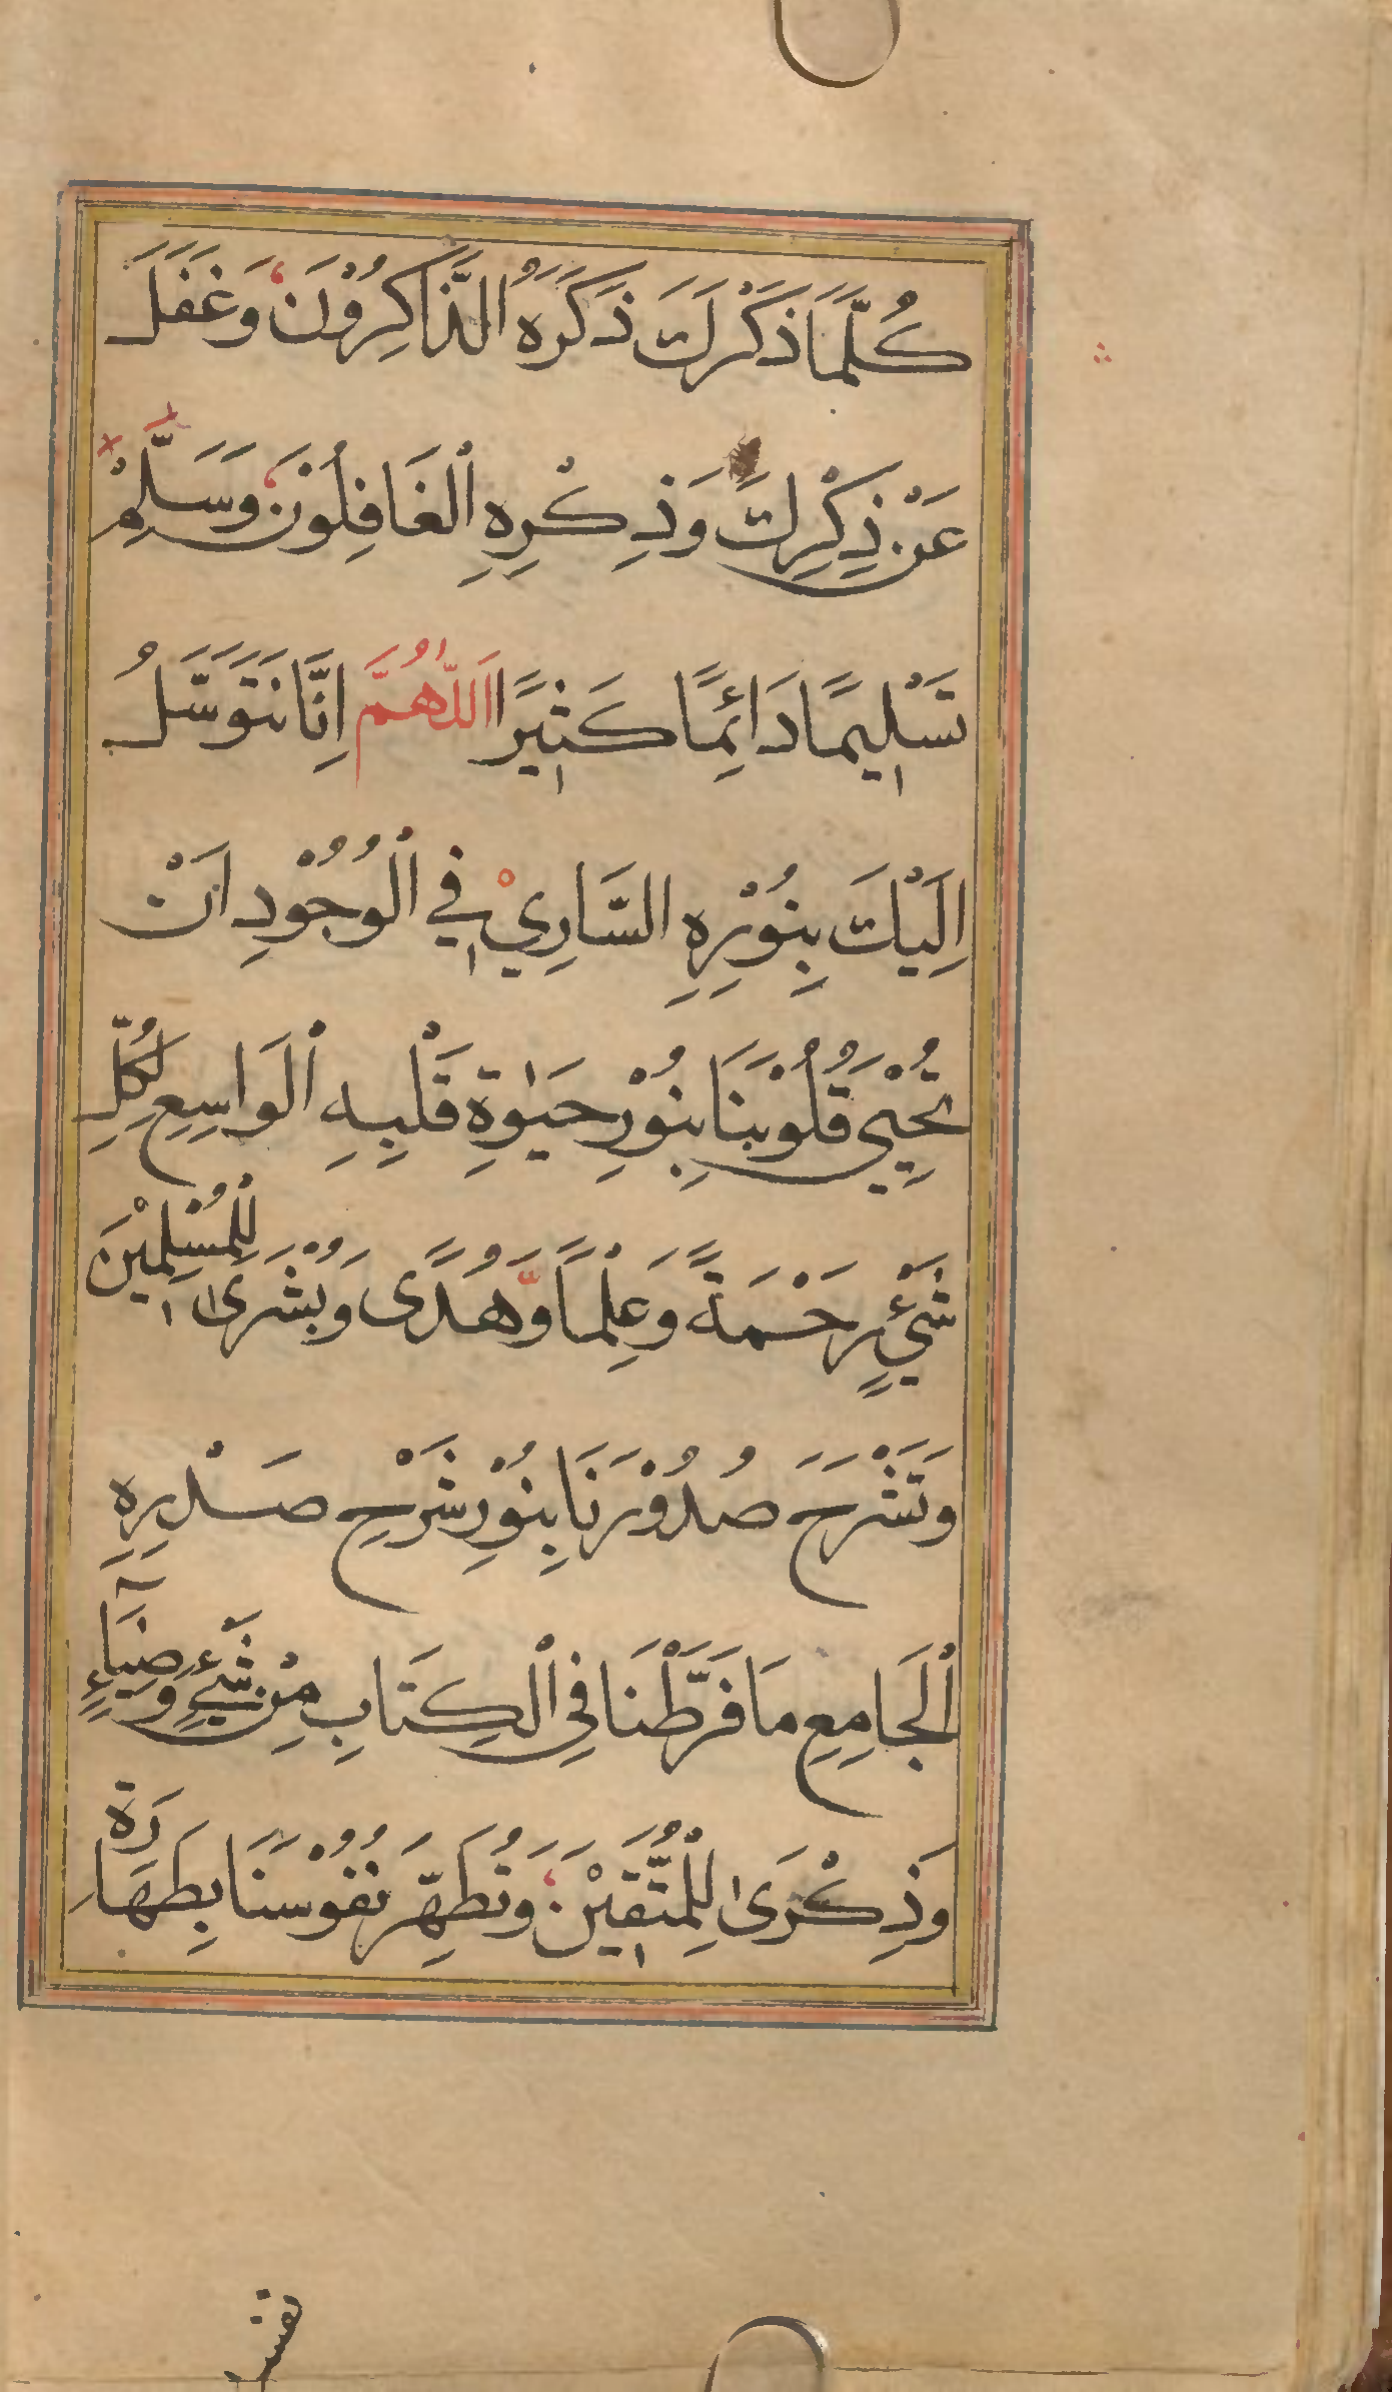 كُلَّمَا ذَكَرَكَ ذَكَرَهُ الذَّاكِرُوْنَ، وَغَفَلَ
عَنْ ذِكْرِكَ وَذِكْرِهِ الْغَافِلُوْنَ، وَسَلِّمْ
تَسْلِيمًا دَائِمًا كَثِيرًا اَللّٰهُمَّ اِنَّا نَتَوَسَّلُ
اِلَيْكَ بِنُوْرِهِ السَّارِيْ فِي الْوُجُوْدِ اَنْ
تُحْيِيَ قُلُوْبَنَا بِنُوْرِ حَيٰوةِ قَلْبِهِ الْوَاسِعِ لِكُلِّ
شَيْءٍ رَحْمَةً وَعِلْمًا وَّهُدًى وَبُشْرٰى لِلْمُسْلِمِيْنَ
وَتَشْرَحَ صُدُوْرَنَا بِنُوْرِ شَرْحِ صَدْرِهِ
الْجَامِعِ مَا فَرَّطْنَا فِي الْكِتَابِ مِنْ شَيْءٍ وَضِيَآءٍ
وَذِكْرٰى لِلْمُتَّقِيْنَ، وَتُطَهِّرَ نُفُوْسَنَا بِطَهَارَةِ
نفسه